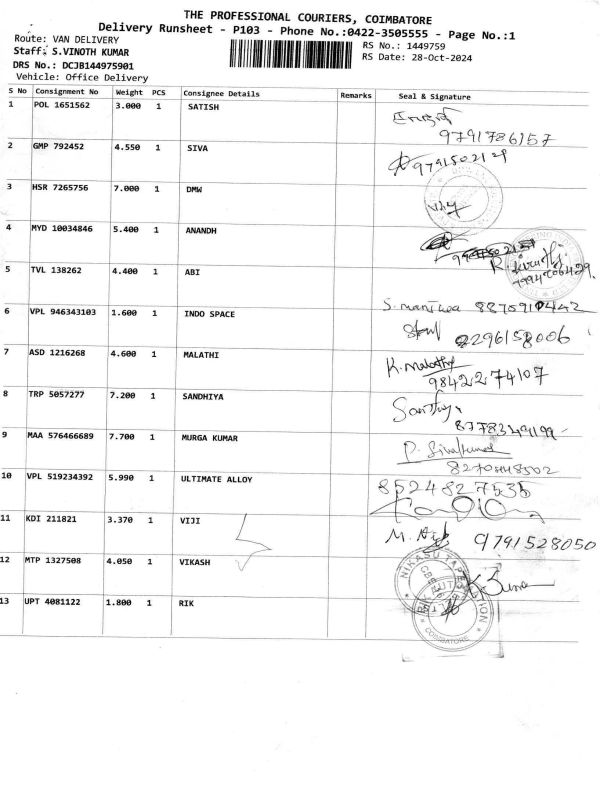 THE PROFESSIONAL COURIERS, COIMBATORE
Delivery Runsheet - P103 - Phone No.:0422-3505555 - Page No.:1
Route: VAN DELIVERY
RS No.: 1449759
Staff: S.VINOTH KUMAR
RS Date: 28-Oct-2024
DRS No.: DCJB144975901
Vehicle: Office Delivery
S No Consignment No Weight PCS Consignee Details Remarks Seal & Signature
1 POL 1651562 3.000 1 SATISH
9791786157
2 GMP 792452 4.550 1 SIVA
3 HSR 7265756 7.000 1 DMW
4 MYD 10034846 5.400 1 ANANDH
5 TVL 138262 4.400 1 ABI
6 VPL 946343103 1.600 1 INDO SPACE
7 ASD 1216268 4.600 1 MALATHI
K. malathy
9842274107
8 TRP 5057277 7.200 1 SANDHIYA
9 MAA 576466689 7.700 1 MURGA KUMAR
10 VPL 519234392 5.990 1 ULTIMATE ALLOY
8524827535
11 KDI 211821 3.370 1 VIJI
9791528050
12 MTP 1327508 4.050 1 VIKASH
13 UPT 4081122 1.800 1 RIK
COIMBATORE